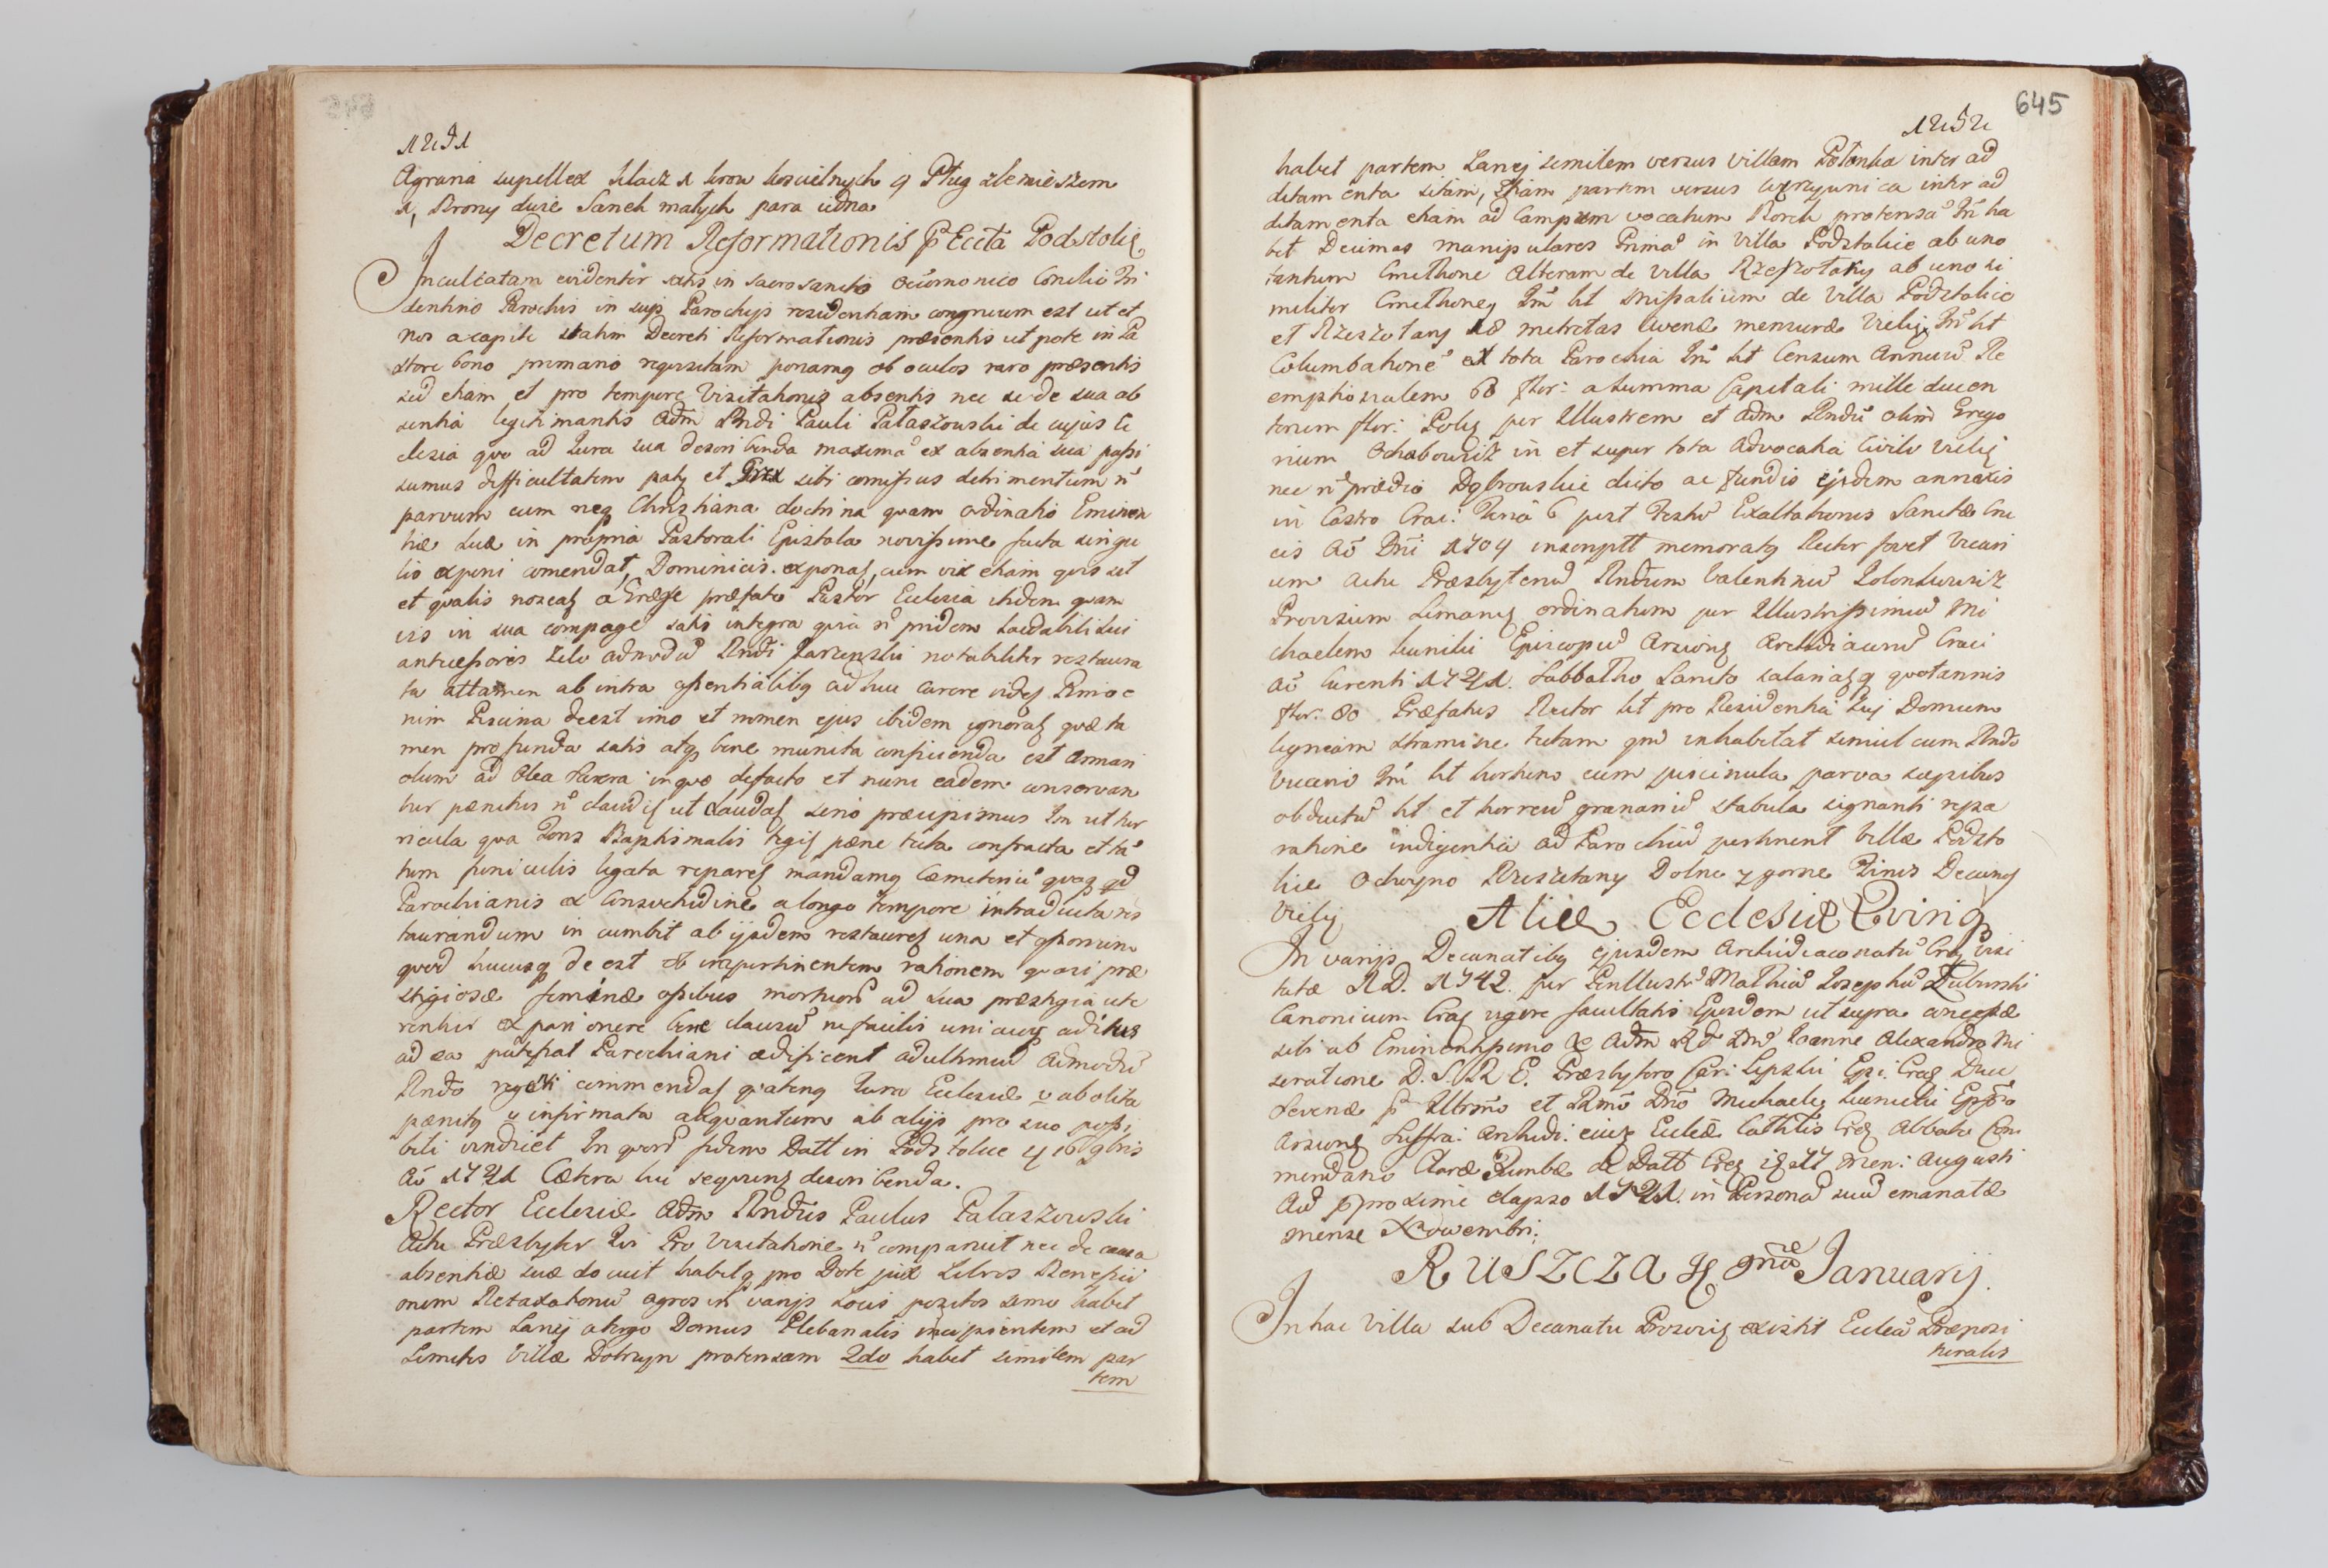 1251
Agraria supellex klacz 1 krow koscielnych 9 Pług zlemieszem
1, Brony duie Sanek małych para iedna
Decretum Reformationis p Eccta Podstolic
Inculcatam evidenter satis in sacrosancto Oecumonico Concilio Tri
dentino Parochis in suis Parochijs residentiam congruum est ut et
nos a capite statim Decreti Reformationis præsentis ut pote in Pa
store bono primario requisitam ponamq ob oculos raro præsentis
sed etiam et pro tempore Visitationis absentis nec se de sua ab
sentia legitimantis Adm Rndi Pauli Pałaszouski de cujus Ec
clesia quo ad Jura sua describenda maxima ex absentia sua passi
sumus difficultatem patq et Grex sibi comissus detrimentum n
parvum cum neq Christiana doctrina quam ordinatio Eminen
tiæ suæ in propria Pastorali Epistola novissime facta singu
lis exponi comendat, Dominicis exponat, cum vix etiam quis sit
et qualis noscat a Grege præfato Pastor Ecclesia itidem quam
vis in sua compage satis integra quia n pridem laudabili sui
antecessoris zelo admodu Rndi Jarczynski notabiliter restaura
ta attamen ab intra essentialibq adhuc carere videt Primo e
nim Piscina deest imo et nomen ejus ibidem ignorat quæ ta
men profunda satis atq bene munita conficienda est Armari
olum ad Olea Sacra in quo defacto et nunc eadem conservan
tur pænitus n claudit ut claudat serio præcipimus Im ut tur
ricula qua Fons Baptismalis tegit pæne tecta confracta et ta
tum funiculis ligata reparet mandamq Cæmeteriu quoq qd
Parochianis ex Consvetudine a longo tempore introducta res
taurandum in cumbit ab ijsdem restauret una et ossorium
quod hucusq de est ob impertinentem rationem quasi præ
stigiosæ feminæ ossibus mortuoru ad sua præstigia ute
rentur ex pari onere bene clausu ne facilis unicuiq aditus
ad ea patescat Parochiani ædificent adultimum Admodu
Rndo regenti commendat quatenq Jura Ecclesiæ v abolita
pænitq v infirmata aliquantum ab alijs pro suo possi
bili vindicet In quoru fidem Datt in Podstolice 4 16 9bris
Aô 1741 Cætera hic sequunt describenda.
Rector Ecclesiæ Adm Rndus Paulus Pałaszouski
Actu Præsbyter Isi Pro Visitatione n comparuit nec de causa
absentiæ suæ docuit habetq pro Dote jux Libros Benefici
orum Retaxationu agros in varijs Locis positos 1mo habet
partem Lanei a tergo Domus Plebanalis incipientem et ad
Limites Villæ Dobczyn protensam 2do habet similem par
tem
645
1252
habet partem Lanej similem versus villam Potonka inter ad
ditam enta sitam, 4tam partem versus inter ad
ditamenta etiam ad Campum vocatum Borek protensa Im ha
bet Decimas manipulares Prima in Villa Podstolice ab uno
tantum Cmethone Alteram de Villa Rzeszotary ab uno si
militer Cmethone Im ht Missalium de Villa Podstolice
et Rzeszotary metretas avenæ mensuræ Vielic Im ht
Columbatione ex tota Parochia Im ht Censum Annuu Re
emptionalem 68 flor: a Summa Capitali mille ducen
torum flor: Polq per Illustrem et Adm Rndu olim Grego
rium Ochabouicz in et super tota Advocatia Civile Vielic
nec n prædio Dąbrouskie dicto ac fundis ejsdem annexis
in Castro Crac: Feria 6 post Festu Exaltationis Sanctæ Cru
cis Aô Dni 1704 inscriptt memoratq Rector fovet Vicari
um Actu Præsbyteru Rndum Valentinu
Provisum Limang ordinatum per Illustrissimu Mi
chaelem Kunicki Episcopu Arsiong Archidiaconu Crac
aô Curenti 1741. Sabbatho Sancto salariatq quotannis
flor: 80 Præfatus Rector ht pro Residentia sui Domum
ligneam stramine tectam qm inhabitat simul cum Rndo
Vicario Im ht hortum cum piscinula parva sæpibus
obductu ht et horreu granariu stabula signanti repa
ratione indigentia ad Parochiu pertinent Villæ Podsto
lice Ochoyno Rzeszotary Dolne y gorne Finis Decang
Vielic
Aliæ Ecclesiæ Rving
In varijs Decanatibq ejusdem Archidiaconatu Crac visi
tatæ A D. 1742 per Perillustr Mathia Josephu Łubinski
Canonicum Crac vigore facultatis Ejusdem ut supra concessæ
sibi ab Eminentissimo ac Adm Rd Dno Joanne Alexandro Mi
seratione D. S. R E. Præsbytero Car: Lipski Epi. Crac Duce
Severiæ p Illrmo et Rmo Dno Michaele Kunicki Eppo
Arsiong Suffra: Archidi: eiusq Eccleæ Cathlis Crac Abbate Com
mendario Claræ Tumbæ de Datt Crac 17 Men: Augusti
Ad p proxime elapso 1741 in Persona sua emanatæ
mense Novembri;
RUSZCZA 4 9næ Januarij.
In hac Villa sub Decanatu Proszoviq existit Ecclea Præposi
turalis